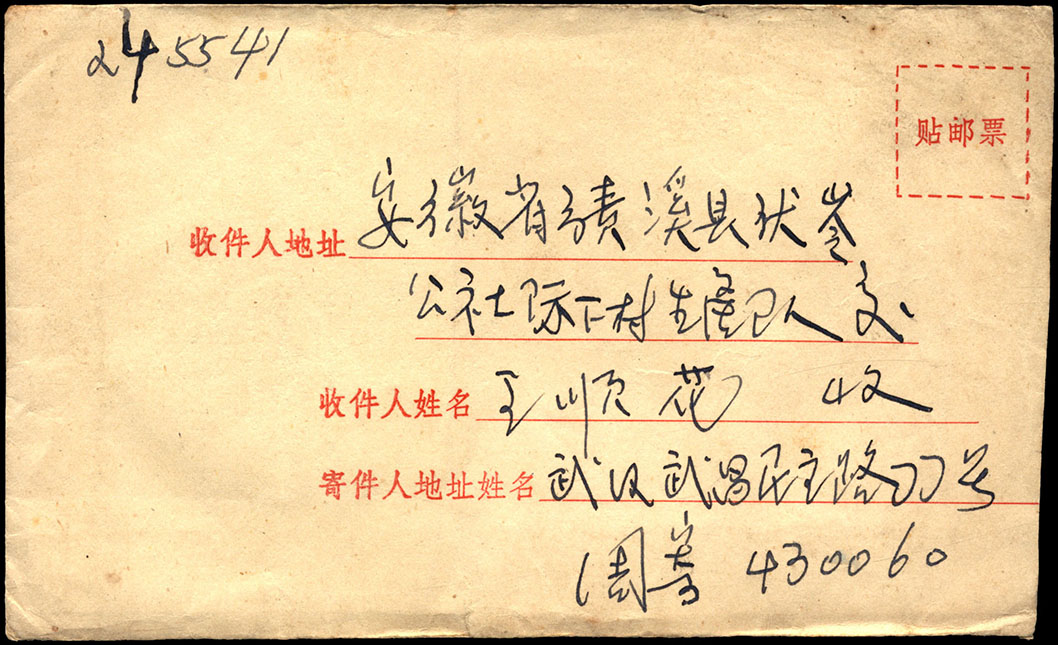 245541
贴邮票
收件人地址 安徽省绩溪县伏岺
公社际下村生产队人交
收件人姓名 王顺花 收
寄件人地址姓名 武汉武昌民主路77号
周寄 430060